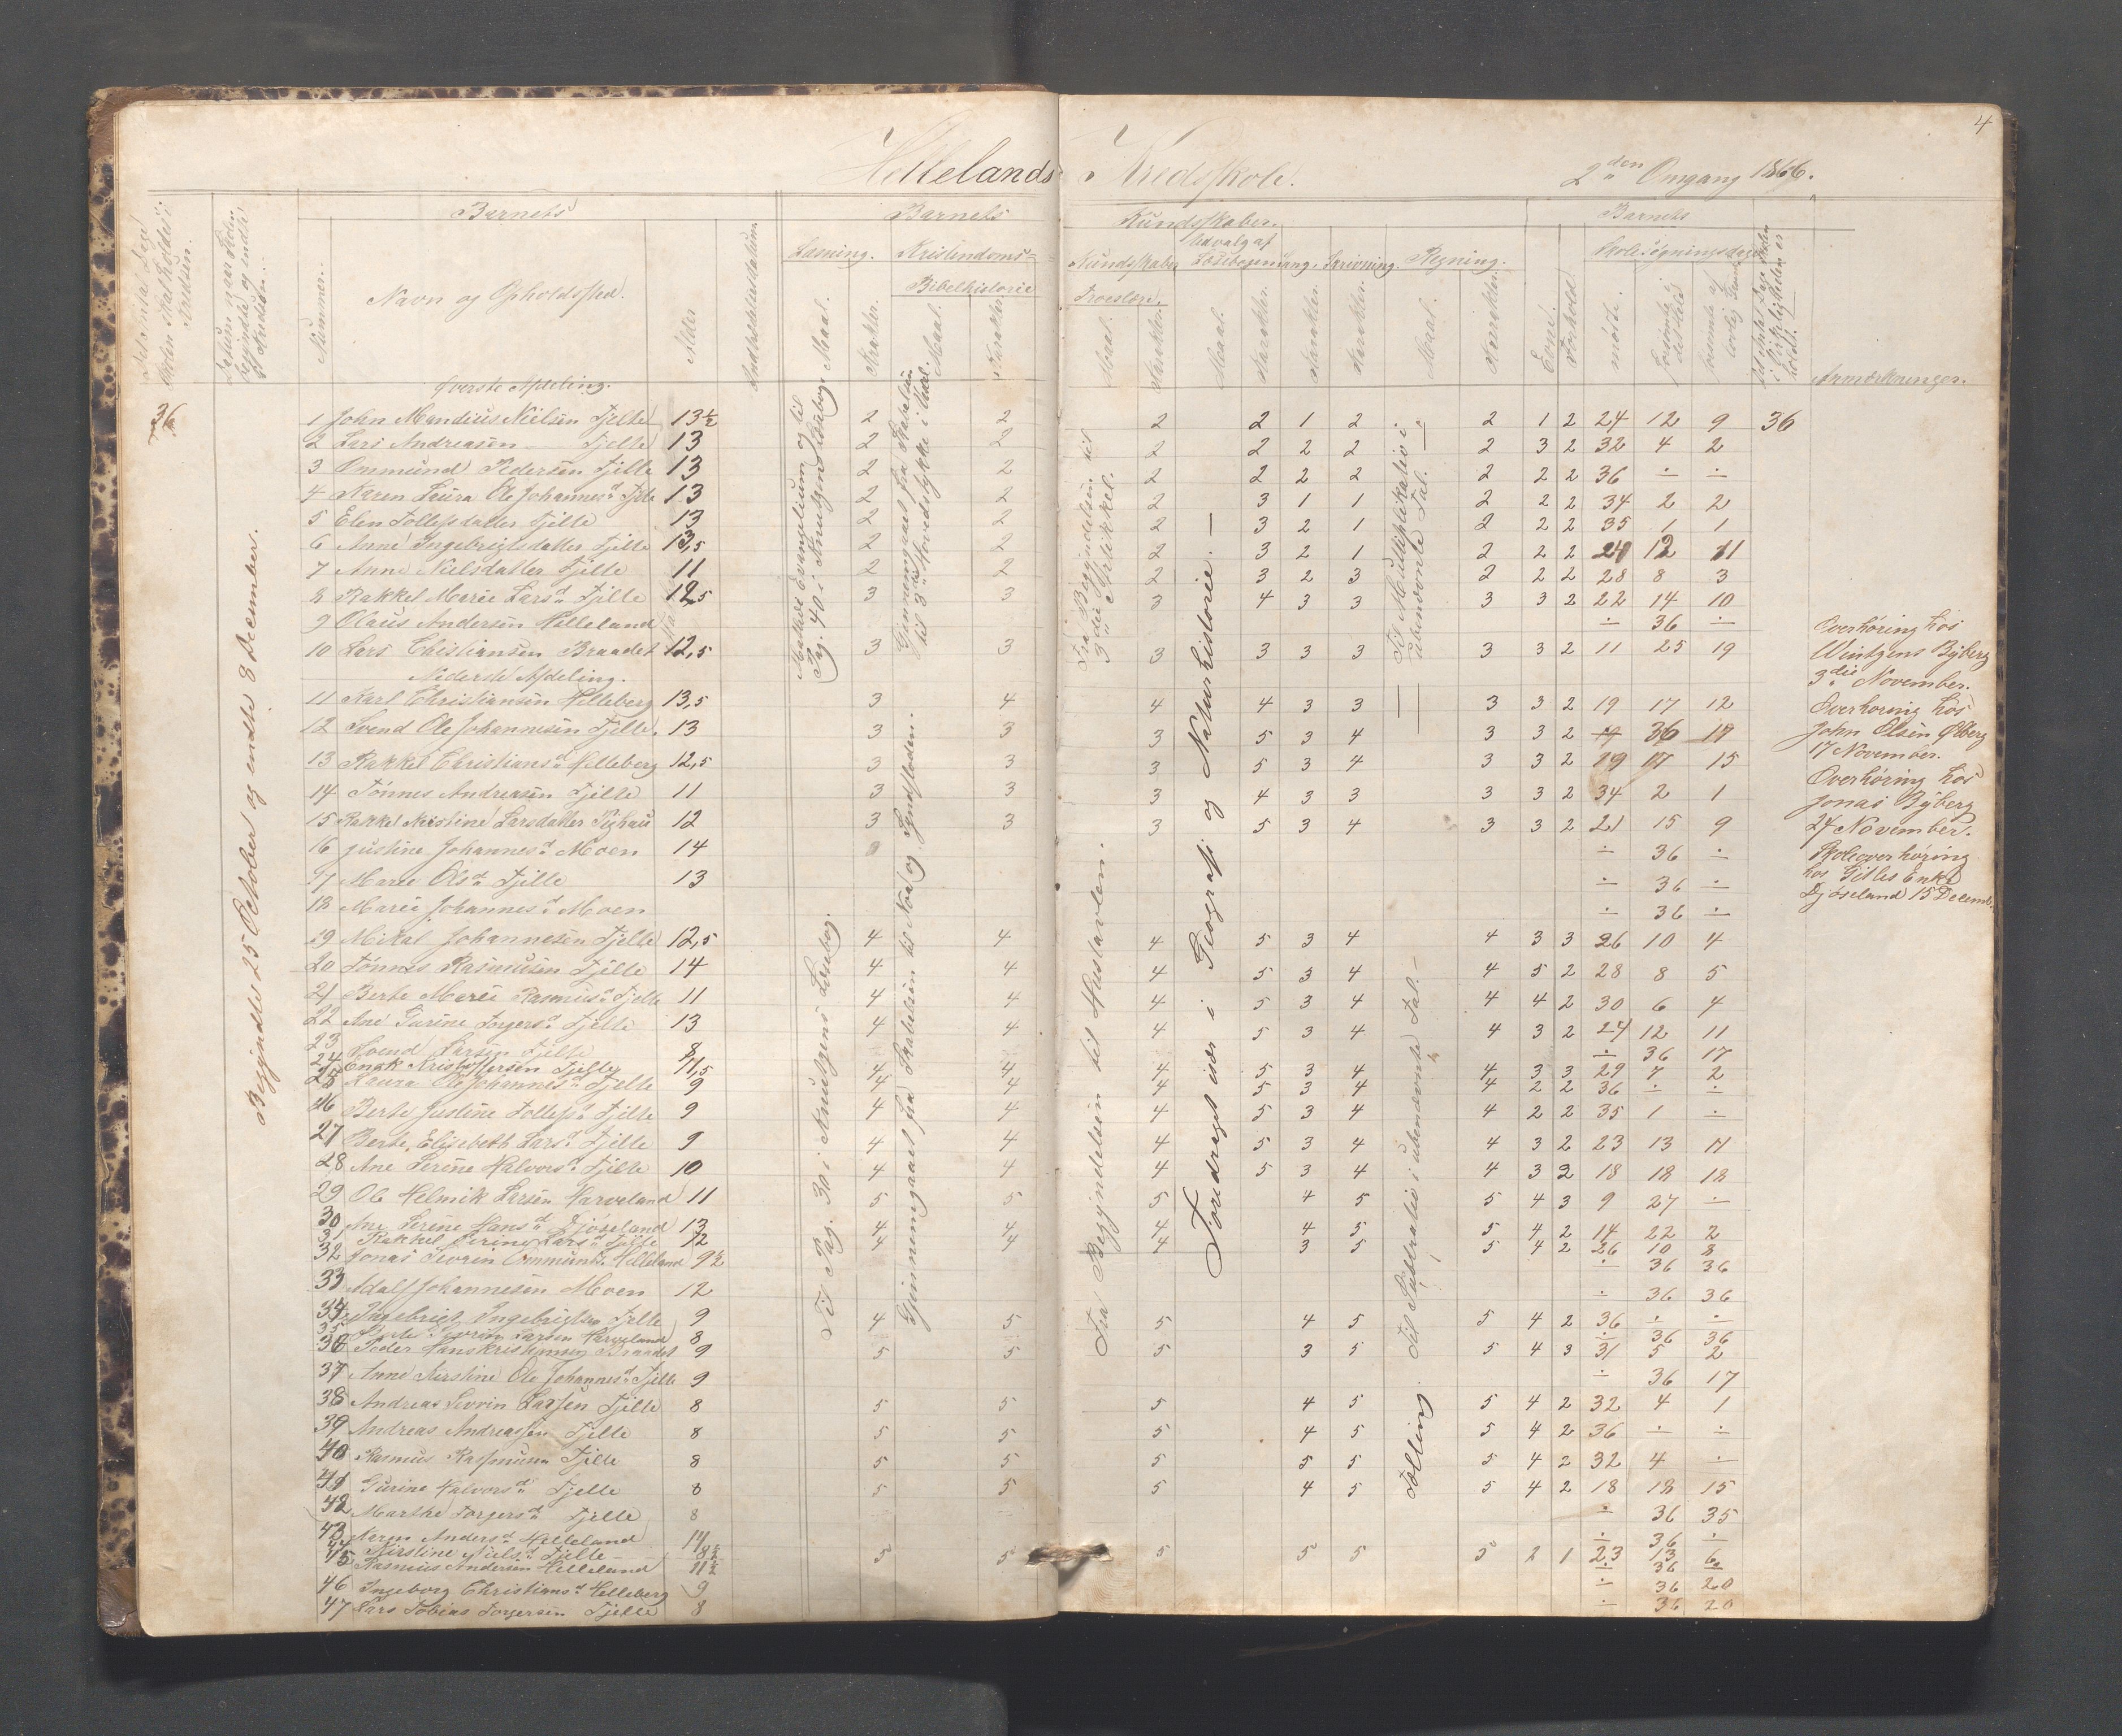 4
Hillelands Kredsskole. 2den Omgang 1866.
Barnets
Barnets Kundskaber.
Barnets
Nummer.
Navn og Opholdssted.
Alder
Indtrædelsesdatum.
Læsning.
Kristendoms- Kundskab
Udvalg af Læsebogen
Sang. Skrivning. Regning.
Bibelhistorie
Troeslære.
Maal.
Karakter.
Evne.
Forhold.
Skolesøgningsdage
mødte.
forsømte i det Hele
Anmærkninger.
36
Begyndte 25 October og endte 8 December.
Øverste Afdeling.
1 John Mandius Nielsen Tjelte 13½ 2 2 2 2 1 2 2 1 2 24 12 9 36
2 Lars Andreasen Tjelte 13 2 2 2 2 2 2 2 3 2 32 4 2
3 Ommund Pedersen Tjelte 13 2 2 2 2 2 2 2 2 2 36 ÷ ÷
4 Karen Laura Ole Johannesd. Tjelte 13 2 2 2 3 1 1 2 2 2 34 2 2
5 Elen Tollefsdatter Tjelte 13 2 2 2 3 2 1 2 2 2 35 1 1
6 Anne Ingebrigtsdatter Tjelte 13,5 2 2 2 3 2 1 2 2 2 24 12 11
7 Anne Nielsdatter Tjelte 11 2 2 2 3 2 3 2 2 2 28 8 3
8 Rakkel Marie Larsd. Tjelte 12,5 3 3 3 4 3 3 3 3 2 22 14 10
9 Olaus Andersen Helleland ÷ 36 ÷
10 Lars Christiansen Braadet 12,5 3 3 3 3 3 3 3 3 2 11 25 19
Nederste Afdeling.
11 Karl Christiansen Helleberg 13,5 3 4 4 4 3 3 3 3 2 19 17 12
12 Svend Ole Johannesen Tjelte. 13 3 3 3 5 3 4 3 3 2 36
13 Rakkel Christiansd. Helleberg 12,5 3 3 3 5 3 4 3 3 2 19 17 15
14 Tönnes Andreasen Tjelte 11 3 3 3 4 3 3 3 3 2 34 2 1
15 Rakkel Kristine Larsdatter 12 3 3 3 5 3 4 3 3 2 21 15 9
16 Justine Johannesd. Moen 14 ÷ 36 ÷
17 Marie Olsd. Tjelte 13 ÷ 36 ÷
18 Marie Johannesd. Moen ÷ 36 ÷
19 Mikal Johannesen Tjelte 12,5 4 4 4 5 3 4 4 3 3 26 10 4
20 Tönnes Rasmussen Tjelte 14 4 4 4 5 3 4 4 5 2 28 8 5
21 Berte Marie Rasmusd. Tjelte 11 4 4 4 5 3 4 4 4 2 30 6 4
22 Ane Gurine Torgersd. Tjelte 13 4 4 4 5 3 4 4 3 2 24 12 11
23 Svend Larsen Tjelte 8 ÷ 36 17
24 Enok Kristoffersen Tjelte 11,5 4 4 4 5 3 4 4 3 3 29 7 2
25 Laura Ole Johannesd. Tjelte 9 4 4 4 5 3 4 4 2 2 36 ÷ ÷
26 Berte Justine Tollefsd. Tjelte 9 4 4 4 5 3 4 4 2 2 35 1 ÷
27 Berte Elisebeth Larsd. Tjelte 9 4 4 4 5 3 4 4 3 2 23 13 11
28 Ane Serine Halvorsd. Tjelte 10 4 4 4 5 3 4 4 3 2 18 18 18
29 Ole Helmik Larsen Harveland 11 5 5 5 4 5 5 4 3 9 27 ÷
30 Ane Serine Hansd. Djöseland 13 4 4 4 4 5 5 4 2 14 22 2
31 Rakkel Serine Larsd. Tjelte 12 4 4 4 3 5 5 4 2 26 10 8
32 Jonas Severin Ommunds. Helleland 9½ ÷ 36 36
33 Adolf Johannesen Moen 12 ÷ 36 36
34 Ingebrigt Ingebrigtsen Tjelte 9 4 5 5 4 5 5 4 2 36 ÷ ÷
35 Larsen Harveland 8 ÷ 36 36
36 Peder Hanskristiansen Braadet 9 5 5 5 3 5 5 4 3 31 5 2
37 Anne Kirstine Ole Johannesd. Tjelte 9 ÷ 36 17
38 Andreas Severin Larsen Tjelte 8 5 5 5 4 5 5 4 2 32 4 1
39 Andreas Andreassen Tjelte 8 5 5 5 4 5 5 4 2 36 ÷ ÷
40 Rasmus Rasmussen Tjelte 8 5 5 5 5 5 5 4 2 32 4 ÷
41 Gurine Halvorsd. Tjelte 8 5 5 5 4 5 5 4 2 18 18 15
42 Marthe Torgersd. Tjelte 8 ÷ 36 35
43 Karen Andersd. Helleland 14 ÷ 36 ÷
44 Kirstine Nielsd. Tjelte 8½ 5 5 5 5 5 5 2 1 23 13 6
45 Rasmus Andersen Helleland 11½ ÷ 36 ÷
46 Ingeborg Christiansd. Helleberg 9 ÷ 36 20
47 Lars Tobias Torgersen Tjelte 8 ÷ 36 20
Matthæi Evangelium og til Pag. 40 i Knutzens Læsebog.
Til Pag. 30 i Knutzens Læsebog.
Gjennemgaaet fra Skabelsen til 3die Hovedstykke i Udv.
Gjennemgaaet fra Skabelsen til Noa og Syndfloden.
Fra Begyndelsen til 3die Artikkel.
Fra Begyndelsen til Hustavlen.
Foredraget især i Geografi og Naturhistorie.
Til Multiplikativ i ubenævnte Tal.
Tælling. Til Subtrativ i ubenævnte Tal.
Overhøring hos
Wintzens Byberg
3die November.
Overhøring hos
John Olsen Ølberg
17 November.
Overhøring hos
Jonas Byberg
24 November.
Skoleoverhøring
hos Gilles Enke
Djöseland 15 Decemb.